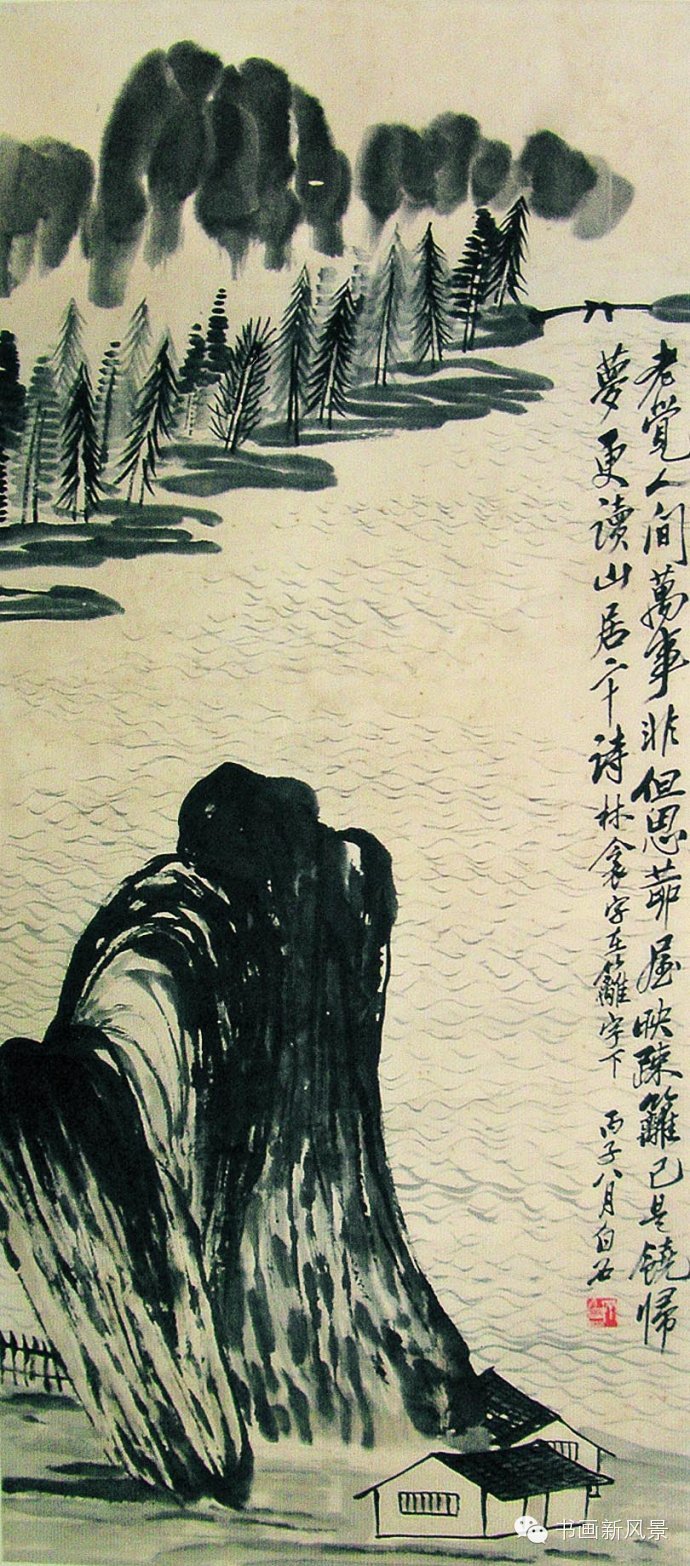 老覺人間萬事非但思茆屋映疎籬已是饒歸
夢更讀山居二十詩林衾字在籬字下
丙子八月白石
书画新风景